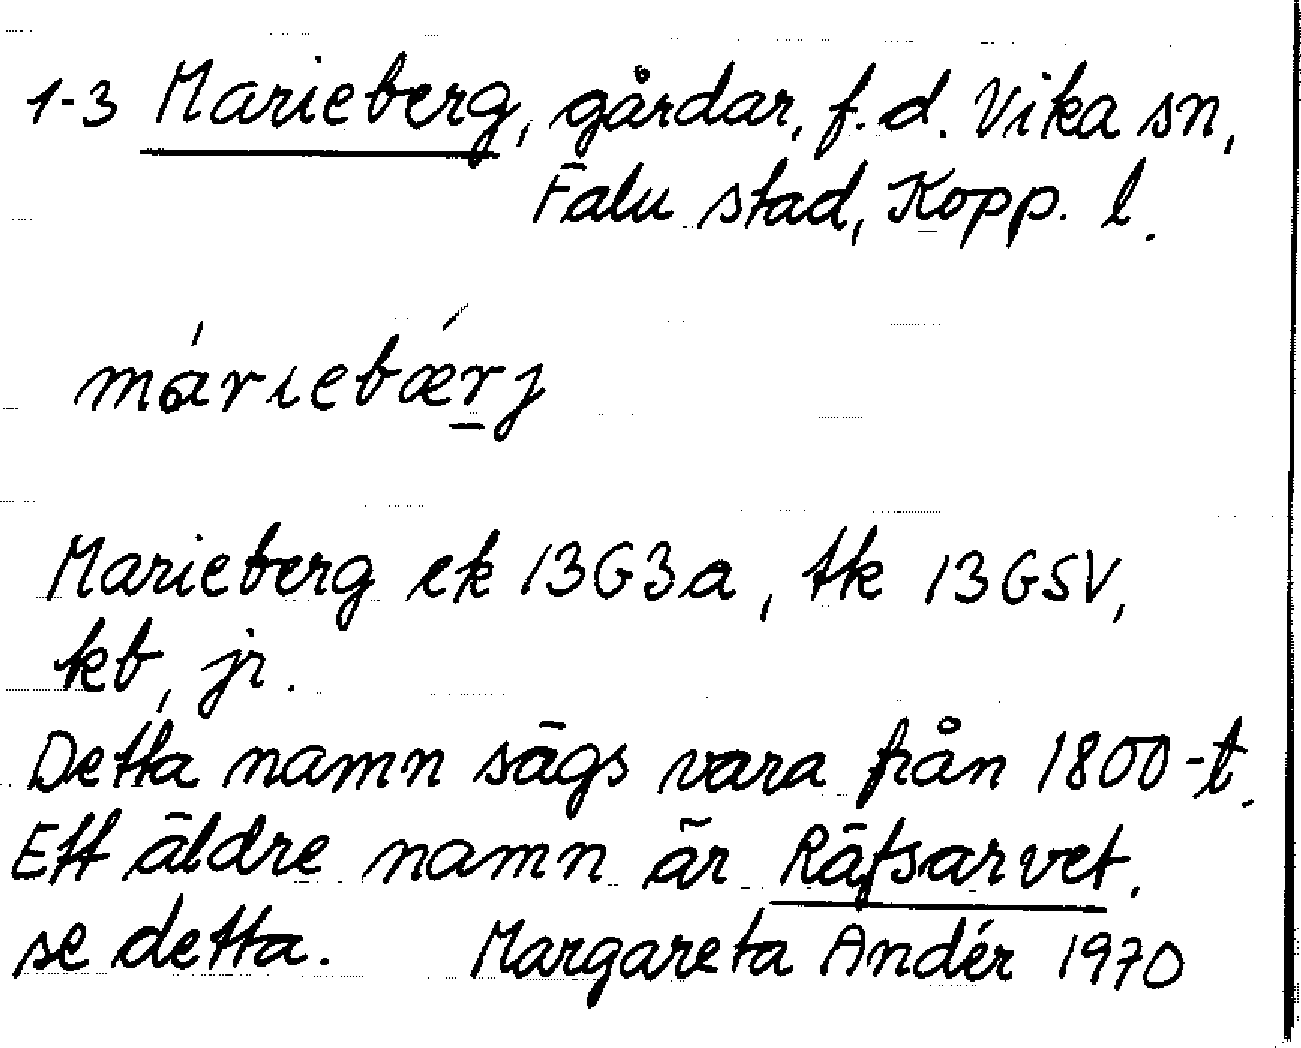 1-3 Marieberg, gårdar, f.d. Vika sn,
Falu stad, Kopp. l.
márıebǽrj
Marieberg ek 13G3a, tk 13GSV,
kb, jr.
Detta namn sägs vara från 1800-t.
Ett äldre namn är Räfsarvet.
se detta. Margareta Andér 1970